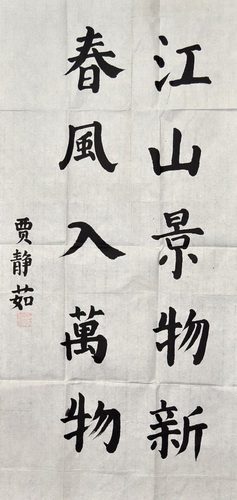 江山景物新
春風入萬物
贾静茹